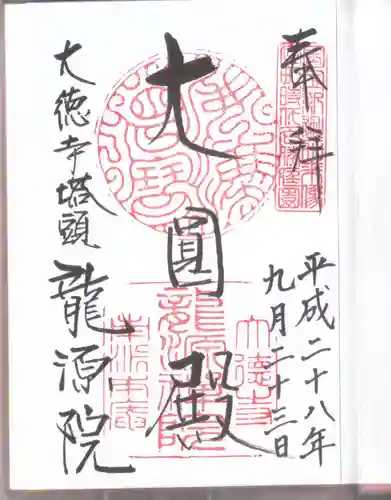 奉拝
平成二十八年
九月二十三日
大圓殿
大徳寺塔頭
龍源院